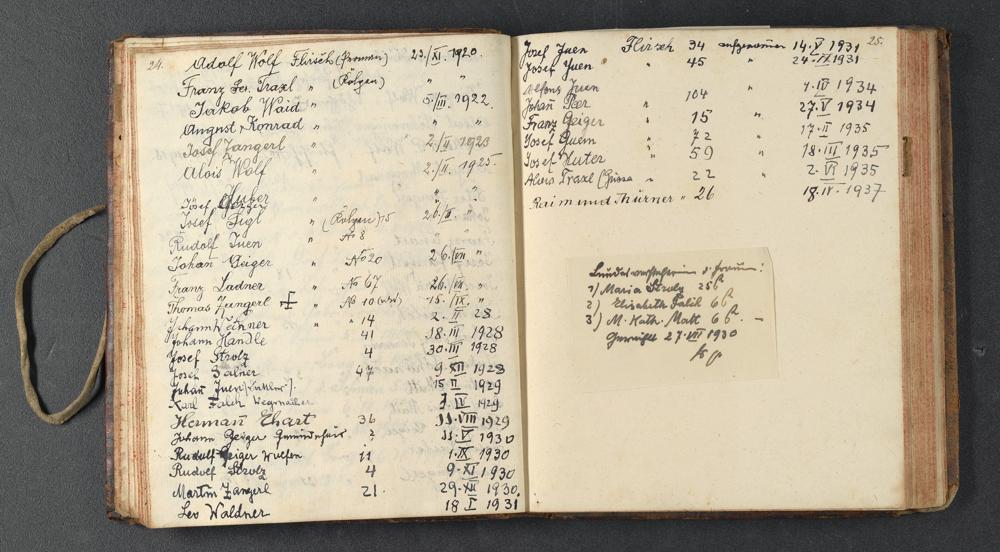 24.
Adolf Wolf Flirsch (Pommen) 23./XI. 1920.
Franz Jos. Traxl " (Rölgen) " "
Jakob Waid " 5./III. 1922.
August Konrad " " "
Josef Zangerl " 2./II. 1923
Alois Wolf " 2./II. 1925.
Josef Huber " " "
Josef Sigl " (Rölgen) 75 26./V. "
Rudolf Juen " No 8 " "
Johan Geiger " No 20 26./VII "
Franz Ladner " No 67 26./VII "
Thomas Zangerl " No 10 15. IX. "
Johann " 14 2. II 28
Johann Handle 41 18. III 1928
Josef Strolz 4 30. III 1928
Josef 47 9. XII 1928
Johañ Juen 15 II 1929
Karl Falch Wegmacher 7. IV 1929
Hermañ Ehart 36 11. VIII 1929
Johann Geiger ? 11. V 1930
Rudolf Geiger 11 1. IX 1930
Rudolf Strolz 4 9. XI 1930
Martin Zangerl 21. 29. XII 1930.
Leo Waldner 18 I 1931
25.
Josef Juen Flirsch 34 aufgenomen 14. V 1931
Josef Juen " 45 " 24. 1931
Alfons Juen 7. IV 1934
Johañ " 104 27. V 1934
Franz Geiger " 15 " 17. II 1935
Josef " 72 18. III 1935
Josef Huter " 59 " 2. VI 1935
Alois Traxl " 22 " 18. IV. 1937
Raimund Thurner " 26
1) Maria Strolz 25
2) Elisabeth Falch 6
3) M. Kath. Matt 6 –
27. VII 1930